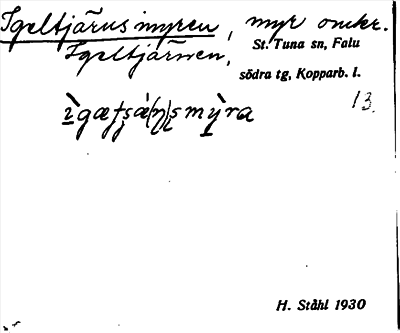 Igeltjärnsmyren, myr omkr.
Igeltjärnen,
St. Tuna sn, Falu
södra tg, Kopparb. l.
13.
H. Ståhl 1930